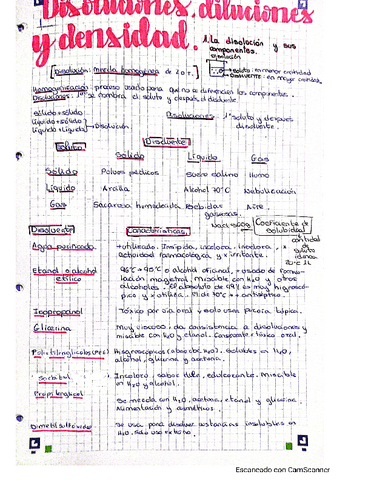 Disoluciones, diluciones
y densidad.
1. La disolución y sus
componentes.
Disolución: mezcla homogénea de 2 o +.
Soluto: en menor cantidad
Disolvente: en mayor cantidad
Homogenización: proceso usado para que no se diferencien los componentes.
Disoluciones: 1º se nombra el soluto y después el disolvente.
Disoluciones 1º soluto y después
disolvente.
sólido + sólido
Líquido + sólido
Líquido + Líquido
Disolución
Disolvente
Soluto
Sólido Líquido Gas
Sólido Polvos pédicos Suero salino Humo
Líquido Arcilla Alcohol 70°C Nebulización
Gas Sacarosa humidificada Bebidas Aire.
gaseosas.
Coeficiente de
solubilidad
cantidad
de
soluto
Disolvente Características.
Agua purificada. + utilizado. Insípida, incolora, inodora,
actividad farmacológica y × irritante.
Etanol o alcohol
etílico
96° × 95° o alcohol oficinal, + usado de formu-
lación magistral, miscible con H₂O y otros
alcoholes. El absoluto de 99% es muy higroscó-
pico y × utiliza. El de 70° × antiséptico.
Isopropanol Tóxico por vía oral y solo usa para vía tópica.
Glicerina Muy viscoso: da consistencia a disoluciones y
miscible con H₂O y etanol. Conservante y tóxico oral.
Polietilenglicoles (PEG) Higroscópicos (absorbe H₂O), solubles en H₂O,
alcohol, glicerina y acetona.
Sorbitol Incoloro, sabor dulce, edulcorante, miscible
en H₂O y alcohol.
Propilenglicol Se mezcla con H₂O, acetona, etanol y glicerina.
Alimentación y cosméticos.
Dimetilsulfóxido Se usa para disolver sustancias insolubles en
H₂O, sólo uso externo.
Escaneado con CamScanner